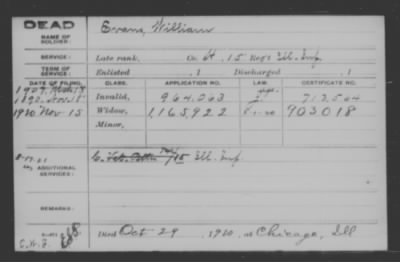 DEAD
NAME OF SOLDIER:
Evans, William
SERVICE:
Late rank, Co. H, 15 Reg't Ill. Inf.
TERM OF SERVICE:
Enlisted , 1 Discharged , 1
DATE OF FILING. CLASS. APPLICATION NO. LAW. CERTIFICATE NO.
Invalid, 964,263 713,504
1920 Nov 15 Widow, 1,163,922 903018
Minor,
ADDITIONAL SERVICES:
15 Ill. Inf.
REMARKS:
Died Oct 29, 1920, at Chicago, Ill